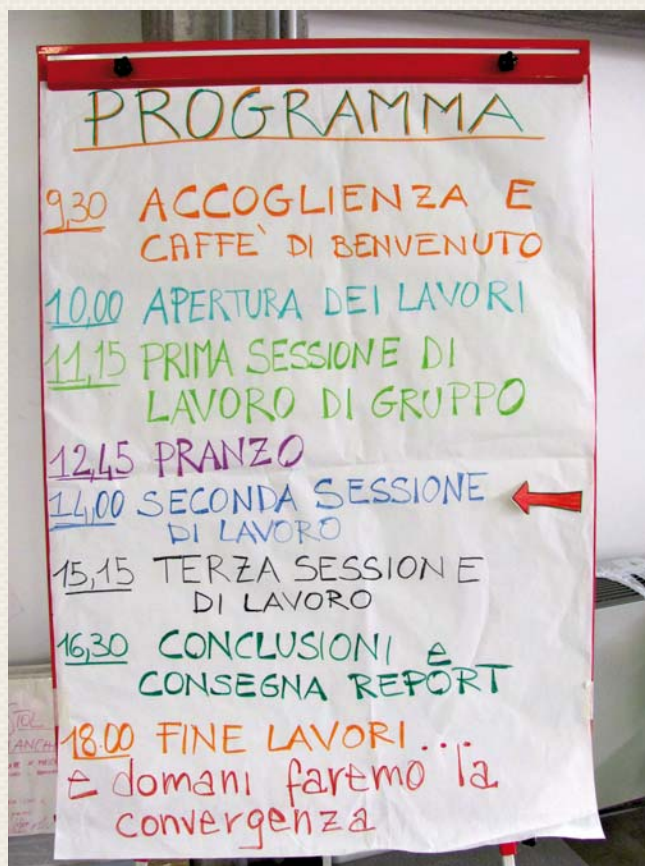 PROGRAMMA
9,30 ACCOGLIENZA E
CAFFE' DI BENVENUTO
10,00 APERTURA DEI LAVORI
11,15 PRIMA SESSIONE DI
LAVORO DI GRUPPO
12,45 PRANZO
14,00 SECONDA SESSIONE
DI LAVORO
15,15 TERZA SESSIONE
DI LAVORO
16,30 CONCLUSIONI e
CONSEGNA REPORT
18.00 FINE LAVORI...
e domani faremo la
convergenza